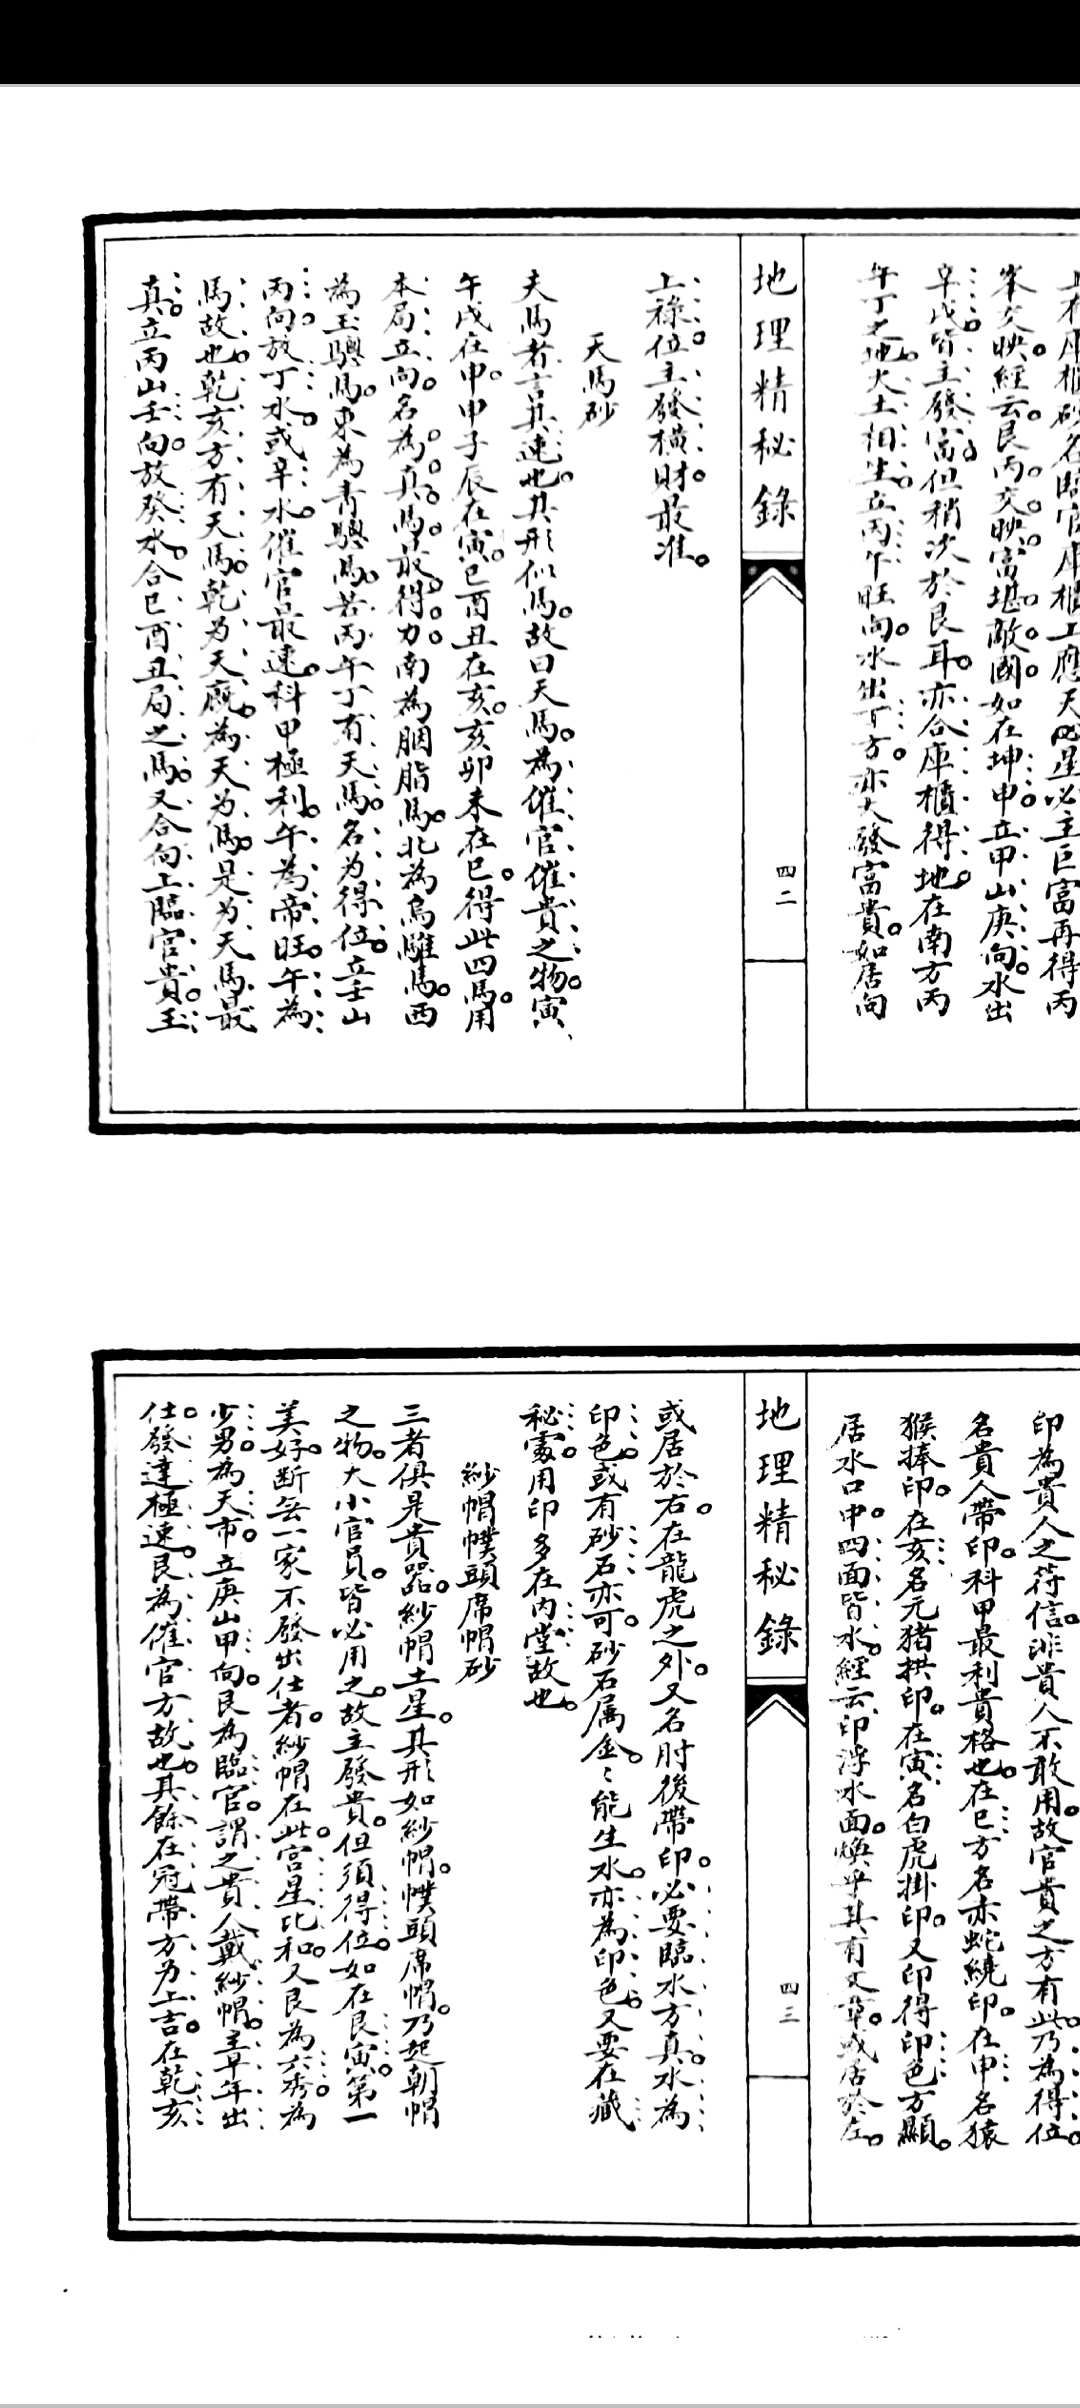 上有庫櫃砂名臨官庫櫃上應天必星必主巨富再得丙
峯交映經云艮丙交映富堪敵國如在坤申立甲山庚向水出
辛戌皆主發富但稍次於艮耳亦合庫櫃得地在南方丙
午丁之地火土相生立丙午旺向水出丁方亦大發富貴如居向
地理精秘錄
四二
上祿位主發橫財最准
天馬砂
夫馬者言其速也其形似馬故曰天馬為催官催貴之物寅
午戌在申申子辰在寅巳酉丑在亥亥卯未在巳得此四馬用
本局立向名為真馬最得力南為胭脂馬北為烏騅馬西
為玉驄馬東為青驄馬若丙午丁有天馬名为得位立壬山
丙向放丁水或辛水催官最速科甲極利午為帝旺午為
馬故也乾亥方有天馬乾为天廐為天为馬是为天馬最
真立丙山壬向放癸水合巳酉丑局之馬又合向上臨官貴玉
印為貴人之符信非貴人不敢用故官貴之方有此乃為得位
名貴人帶印科甲最利貴格也在巳方名赤蛇繞印在申名猿
猴捧印在亥名元猪拱印在寅名白虎掛印又印得印色方顯
居水口中四面皆水經云印浮水面煥乎其有文章或居於左
地理精秘錄
四三
或居於右在龍虎之外又名肘後帶印必要臨水方真水為
印色或有砂石亦可砂石属金〻能生水亦為印色又要在藏
秘處用印多在內堂故也
紗帽幞頭席帽砂
三者俱是貴器紗帽土星其形如紗帽幞頭席帽乃起朝帽
之物大小官員皆必用之故主發貴但須得位如在艮寅第一
美好断無一家不發出仕者紗帽在此宮星比和又艮為六秀為
少男為天市立庚山甲向艮為臨官謂之貴人戴紗帽主早年出
仕發達極速艮為催官方故也其餘在冠帶方为上吉在乾亥